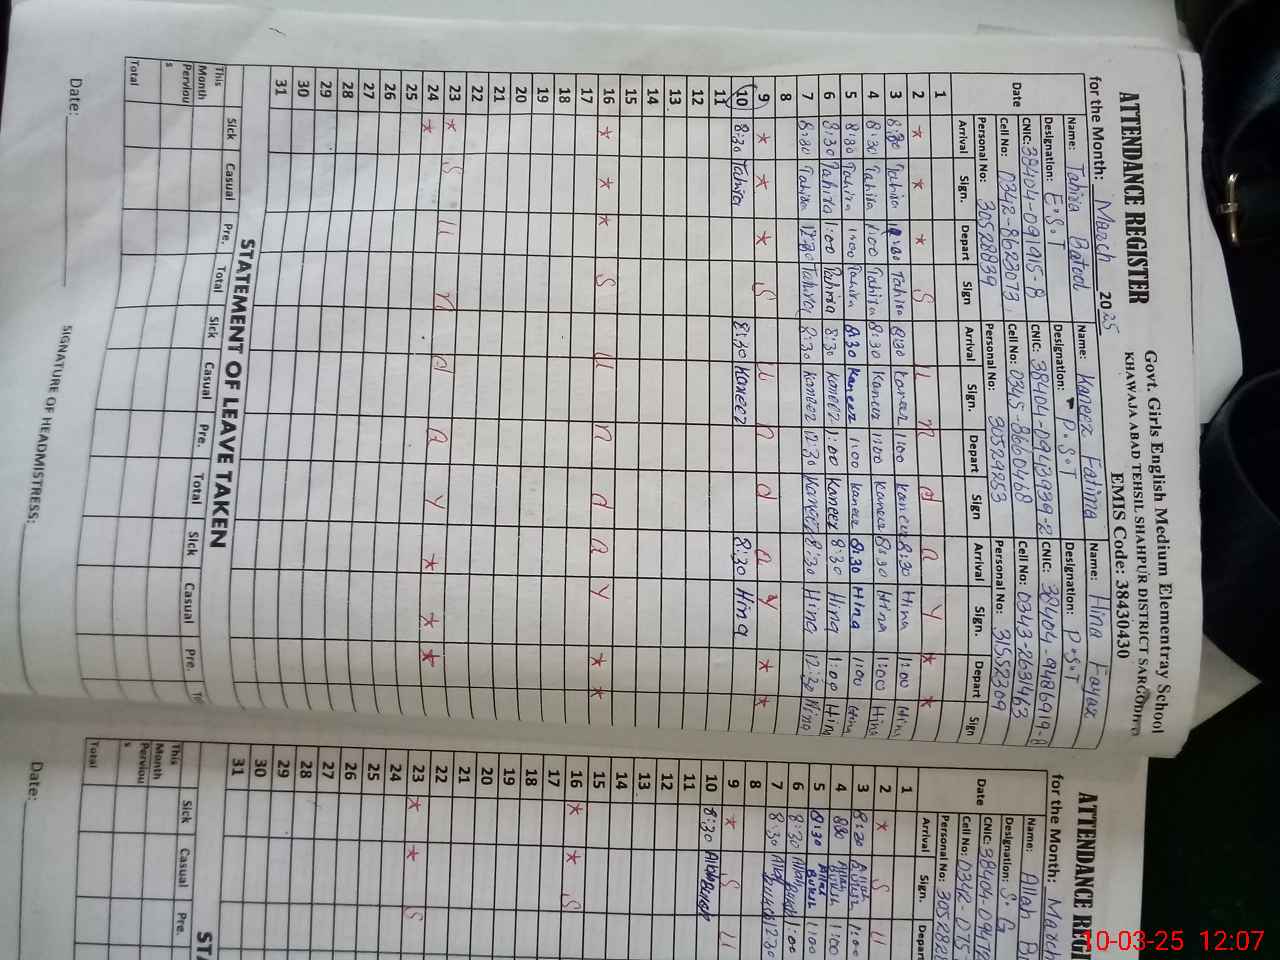 ATTENDANCE REGISTER
Govt. Girls English Medium Elementray School
KHAWAJA ABAD TEHSIL SHAHPUR DISTRICT SARGODHA
EMIS Code: 38430430
for the Month: March 2025
Name: Tahira Batool Name: Kaneez Fatima Name: Hina Fayaz
Designation: E.S.T Designation: P.S.T Designation: P.S.T
Date CNIC: 38404-091915-8 CNIC: CNIC:
Cell No: 0342-8623073 Cell No: 0345-8660468 Cell No: 0343-
Personal No: 30528839 Personal No: 30529253 Personal No: 31552309
Arrival Sign. Depart Sign Arrival Sign. Depart Sign Arrival Sign. Depart Sign
1
2 * * * S u n d a y * *
3 8:30 Tahira Tahira 8:30 Kaneez 1:00 Kaneez 8:30 Hina 1:00 Hina
4 8:30 Tahira 1:00 Tahira 8:30 Kaneez 1:00 Kaneez 8:30 Hina 1:00 Hina
5 8:30 Tahira 1:00 Tahira 8:30 Kaneez 1:00 Kaneez 8:30 Hina 1:00 Hina
6 8:30 Tahira 1:00 Tahira 8:30 Kaneez 1:00 Kaneez 8:30 Hina 1:00 Hina
7 8:30 Tahira 12:30 Tahira 8:30 Kaneez 12:30 Kaneez 8:30 Hina 12:30 Hina
8
9 * * * S u n d a y * *
10 8:30 Tahira 8:30 Kaneez 8:30 Hina
11
12
13
14
15
16 * * * S u n d a y * *
17
18
19
20
21
22
23 * S u n d a y * * *
24 *
25
26
27
28
29
30
31
STATEMENT OF LEAVE TAKEN
Sick Casual Pre. Total Sick Casual Pre. Total Sick Casual Pre. To
This
Month
Perviou
s
Total
Date:
SIGNATURE OF HEADMISTRESS:
ATTENDANCE REG
for the Month: March
Name: Allah
Designation: S.G
Date CNIC:
Cell No: 0342-075
Personal No: 3052821
Arrival Sign. Depart
1
2 * S u
3 8:30 Allah 1:00
4 830 Allah 1:00
5 8:30 Allah 1:00
6 8:30 Allah 1:00
7 8:30 12:30
8
9 * S u
10 8:30
11
12
13
14
15
16 * * S
17
18
19
20
21
22
23 * * S
24
25
26
27
28
29
30
31
STA
Sick Casual Pre.
This
Month
Perviou
s
Total
Date:
10-03-25 12:07